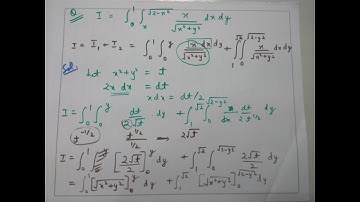 Q. I = ∫₀¹ ∫ₓ^√(2-x²) x/√(x²+y²) dx dy
I = I₁ + I₂ = ∫₀¹ ∫₀^y x dx/√(x²+y²) dy + ∫₁^√2 ∫₀^√(2-y²) x/√(x²+y²) dx dy
Sol. Let x²+y² = t
2x dx = dt
x dx = dt/2
I = ∫₀¹ ∫₀^y dt/2√t dy + ∫₁^√2 ∫₀^√(2-y²) dt/2t^1/2 dy
t^-1/2 t^1/2/1/2 ⟹ 2√t
I = ∫₀¹ [2√t/2]₀^y dy + ∫₁^√2 ∫₀^√(2-y²) 2√t/2 dy
= ∫₀¹ [√(x²+y²)]₀^y dy + ∫₁^√2 [√(x²+y²)]₀^√(2-y²) dy